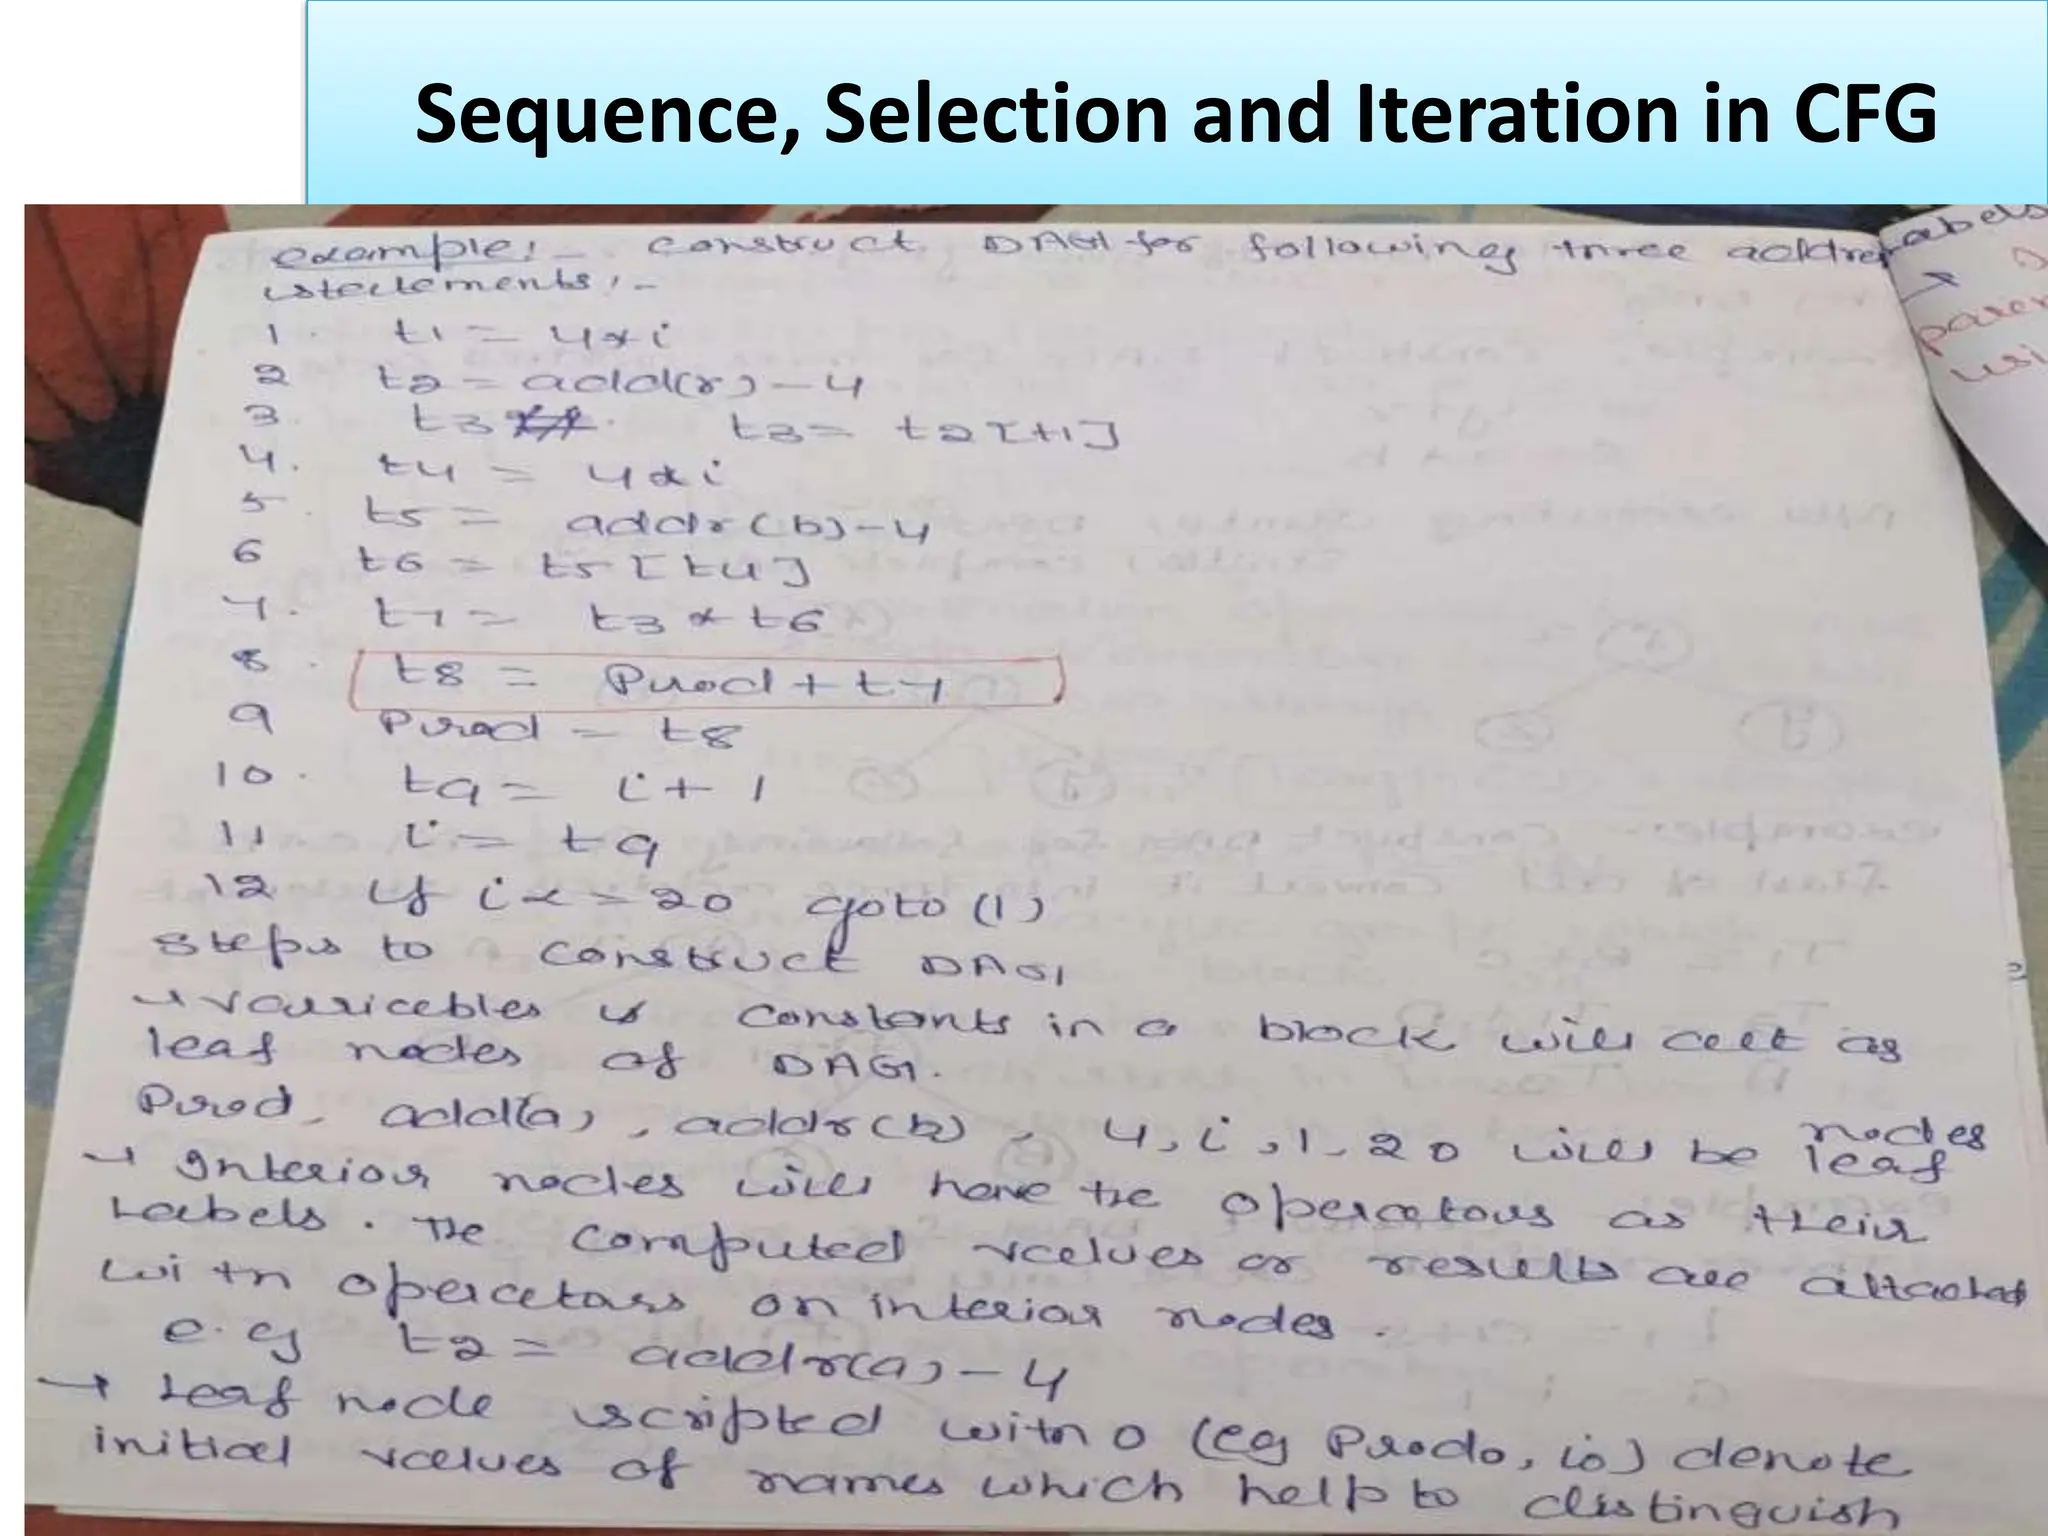 Sequence, Selection and Iteration in CFG
example:- construct DAG for following three addres
statements:-
1. t1 = 4*i
2 t2 = add(r) - 4
3. t3 t3 = t2[t1]
4. t4 = 4*i
5. t5 = addr(b)-4
6 t6 = t5[t4]
7. t7 = t3*t6
8. t8 = Prod + t7
9 Prod = t8
10. t9 = i+1
11 i = t9
12 If i<=20 goto (1)
Steps to construct DAG
→ variables & constants in a block will act as
leaf nodes of DAG.
Prod, add(a), addr(b), 4, i, 1, 20 will be leaf nodes
→ Interior nodes will have the operators as their
Labels. The computed values or results are attached
with operators on interior nodes.
e.g t2 = addr(a) - 4
→ Leaf node scripted with 0 (eg Prod0, i0) denote
initial values of names which help to distinguish
labels
paren
usi